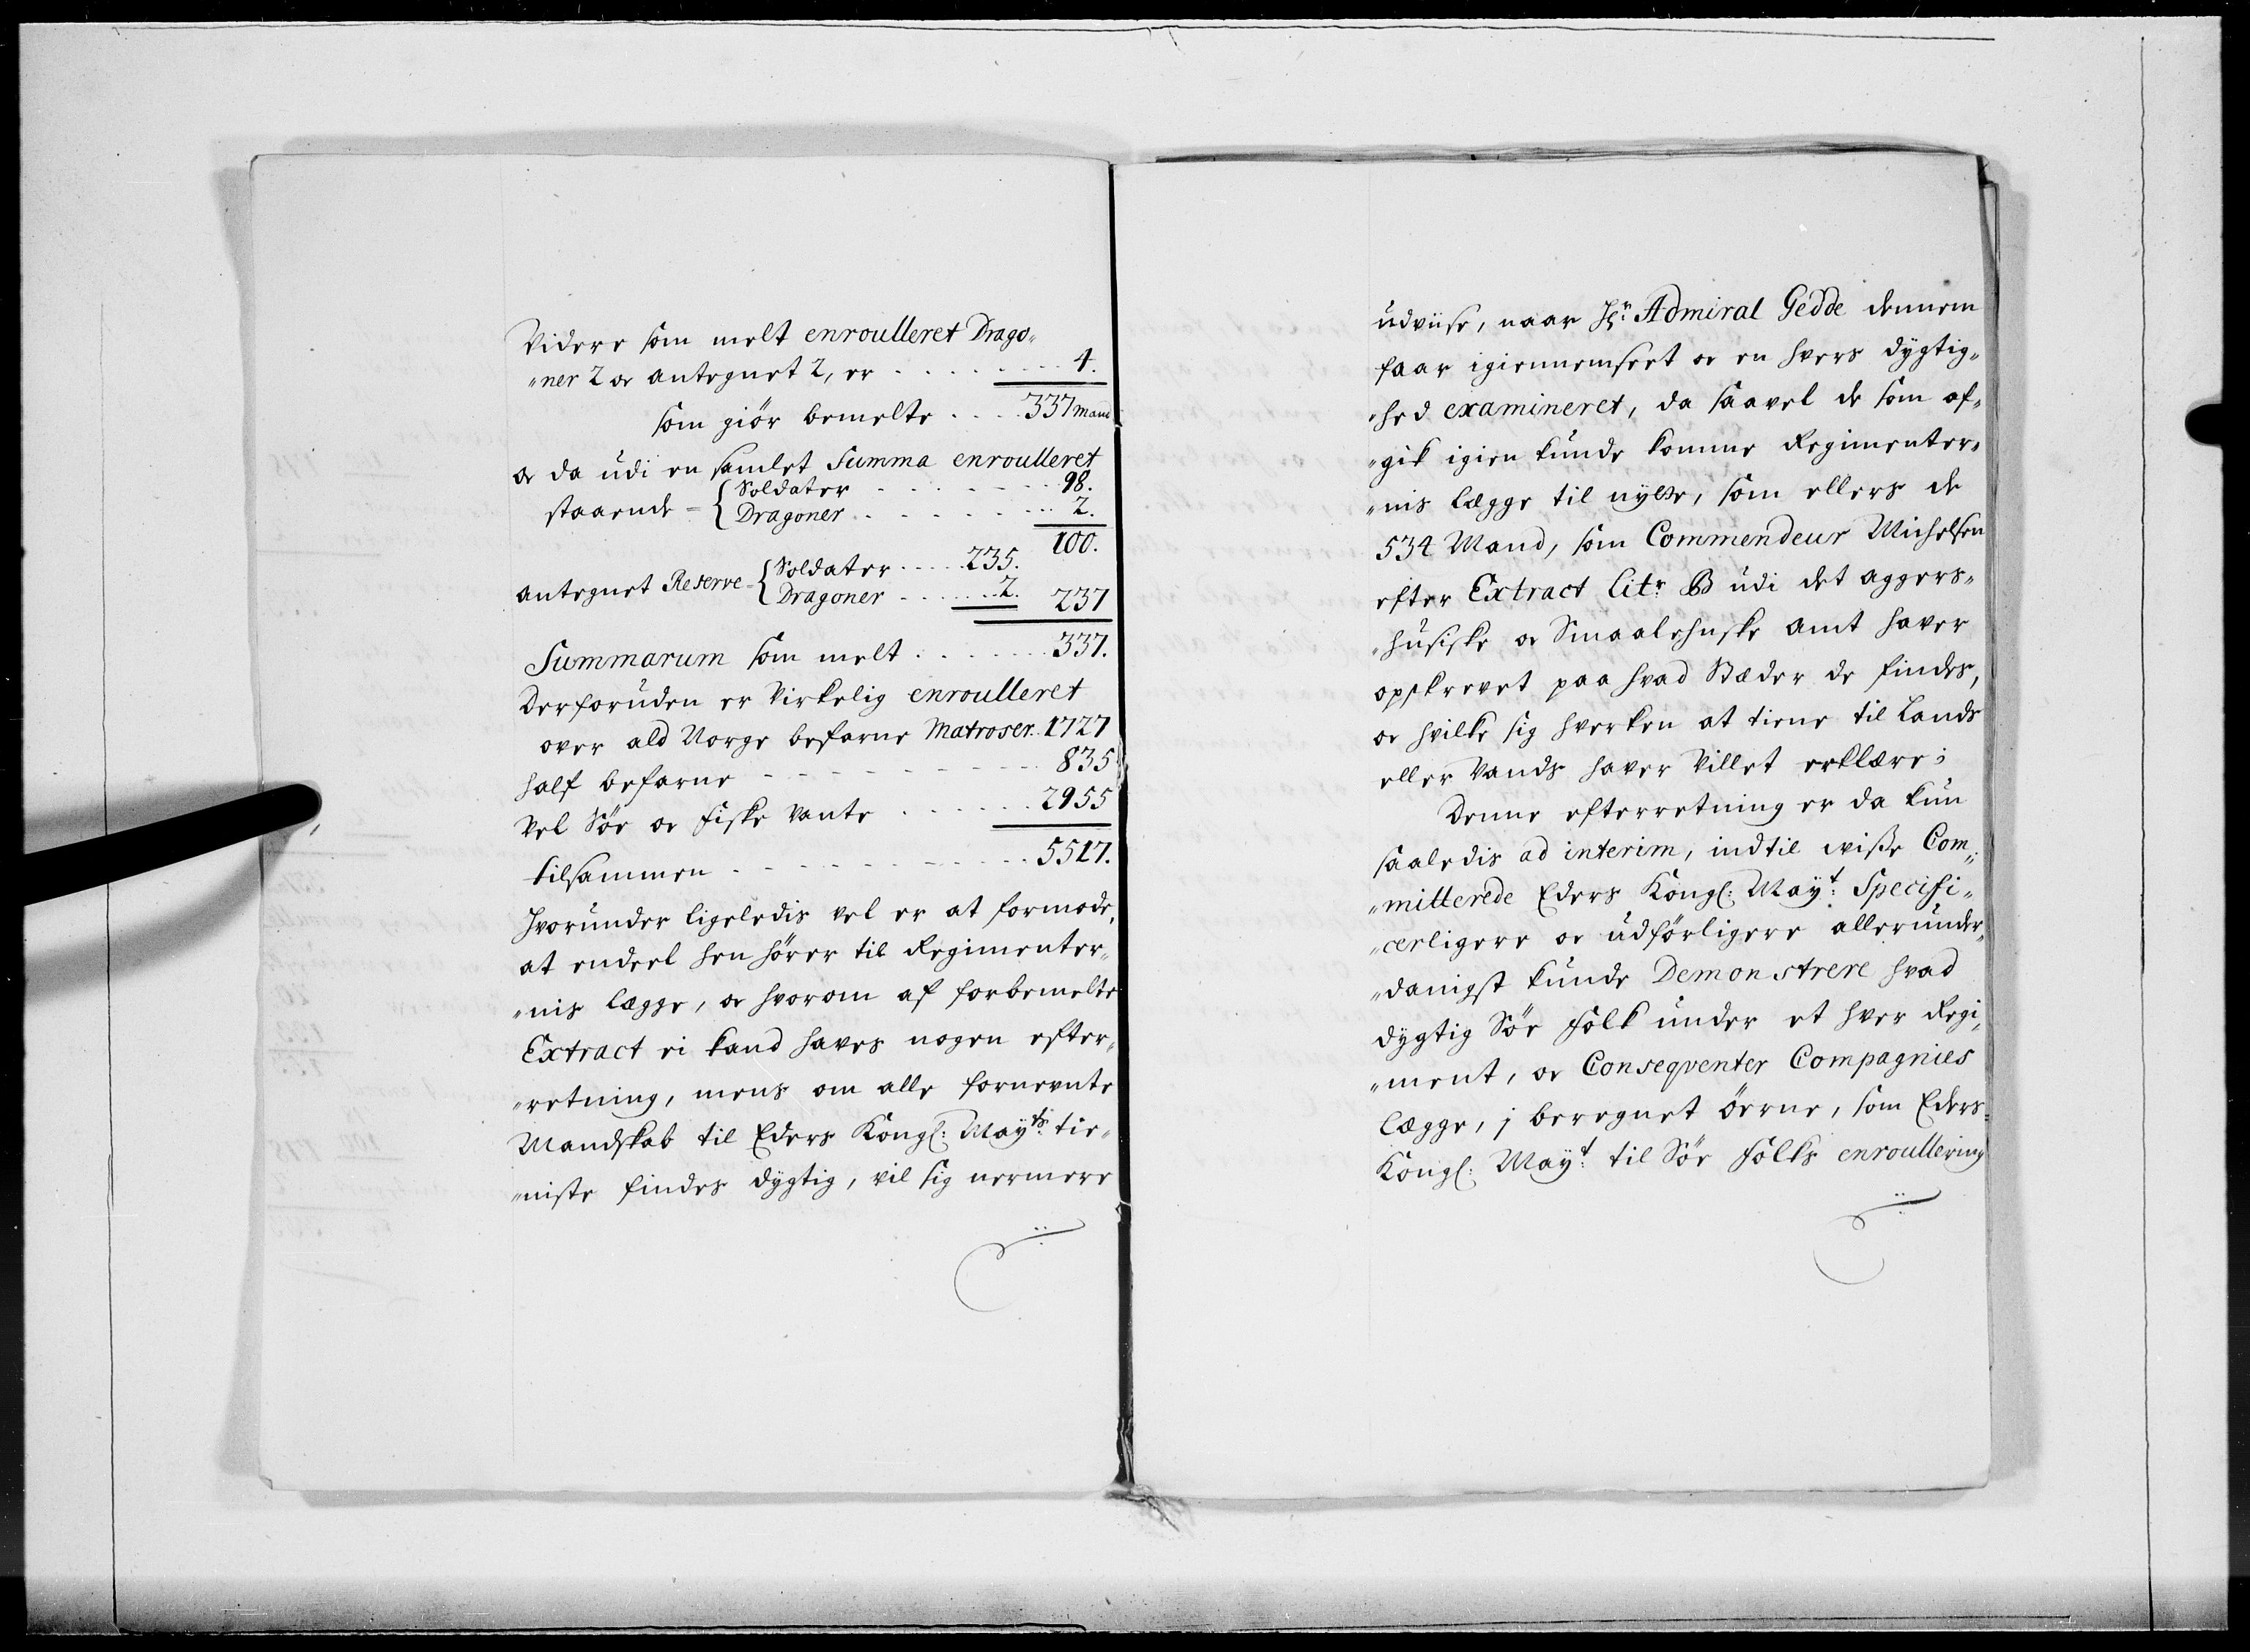 Videre som melt enroulleret Drago„
„ner 2 oc antegnet 2, er . . . . . . . . 4.
som giör bemelte . . . . 337 mand
oc da udi en samlet Summa enroulleret
staaende = { Soldater . . . . . . 98.
Dragoner . . . . . . . 2.
100.
antegnet Reserve = { Soldater . . . . . 235.
Dragoner . . . . . . 2. 237
Summarum som melt . . . . . . . 337.
Derforuden er Virkelig enroulleret
over ald Norge befarne Matroser . . 1727
half befarne - - - - - - - - 835
Vel Söe oc fiske vante . . . . . . 2955
tilsammen - - - - - - - - 5517.
hvorunder ligeledis vel er at formode,
at endeel hen hörer til Regimenter„
„nis lægge, oc hvorom af forbemelte
Extract ei kand haves nogen efter„
„retning, mens om alle fornevnte
Mandskab til Eders Kongl: Mayts: tie„
„niste findes dygtig, vil sig nermere
udviise, naar Hr. Admiral Gedde dennem
faar igiennemseet oc en hvers dygtig„
„hed examineret, da saavel de som af„
„gik igien kunde komme Regimenter„
„nis lægge til nytte, som ellers de
534 Mand, som Commendeur Michelsen
efter Extract Litr B udi det aggers„
„husiske oc Smaalehnske amt haver
opskrevet paa hvad Stæder de findes,
oc hvilke sig hverken at tiene til Lands
eller Vands haver Villet erklære;
Denne efterretning er da kun
saaledis ad interim, indtil wisse Com„
„mitterede Eders Kongl: Mayt: Specifi„
„cerligere oc udförligere allerunder„
„danigst kunde Demonstrere hvad
dygtig Söe folk under et hver Regi„
„ment, oc Conseqventer Compagnies
lægge, i beregnet öerne, som Eders
Kongl: Mayt: til Söe folks enroullering